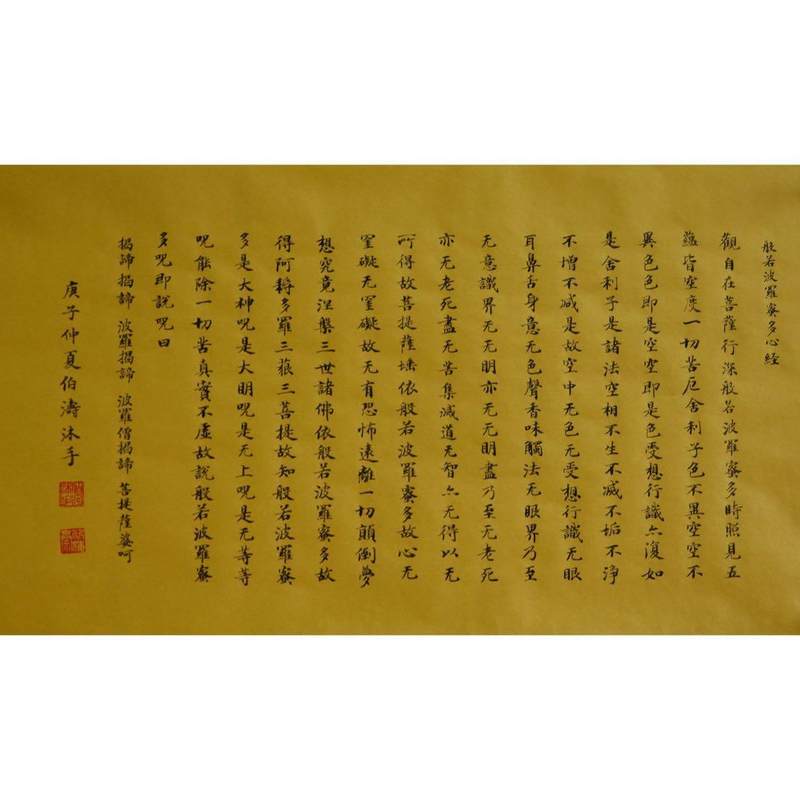 般若波羅蜜多心經
觀自在菩薩行深般若波羅蜜多時照見五
蘊皆空度一切苦厄舍利子色不異空空不
異色色即是空空即是色受想行識亦復如
是舍利子是諸法空相不生不滅不垢不淨
不增不減是故空中无色无受想行識无眼
耳鼻舌身意无色聲香味觸法无眼界乃至
无意識界无无明亦无无明盡乃至无老死
亦无老死盡无苦集滅道无智亦无得以无
所得故菩提薩埵依般若波羅蜜多故心无
罣礙无罣礙故无有恐怖遠離一切顛倒夢
想究竟涅槃三世諸佛依般若波羅蜜多故
得阿耨多羅三藐三菩提故知般若波羅蜜
多是大神咒是大明咒是无上咒是无等等
咒能除一切苦真實不虛故說般若波羅蜜
多咒即說咒曰
揭諦 揭諦 波羅揭諦 波羅僧揭諦 菩提薩婆呵
庚子仲夏伯濤沐手